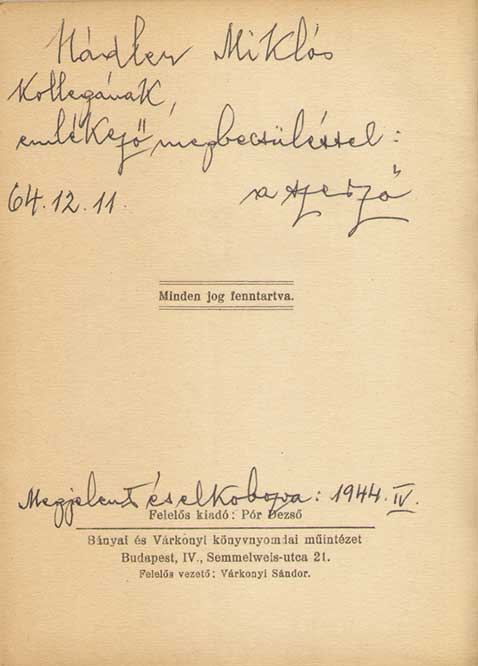 Nádler Miklós
Kollegának,
emlékező megbecsüléssel:
64.12.11. a szerző
Minden jog fenntartva.
Megjelent és elkobozva: 1944. IV.
Felelős kiadó: Pór Dezső
Bányai és Várkonyi könyvnyomdai műintézet
Budapest, IV., Semmelweis-utca 21.
Felelős vezető: Várkonyi Sándor.